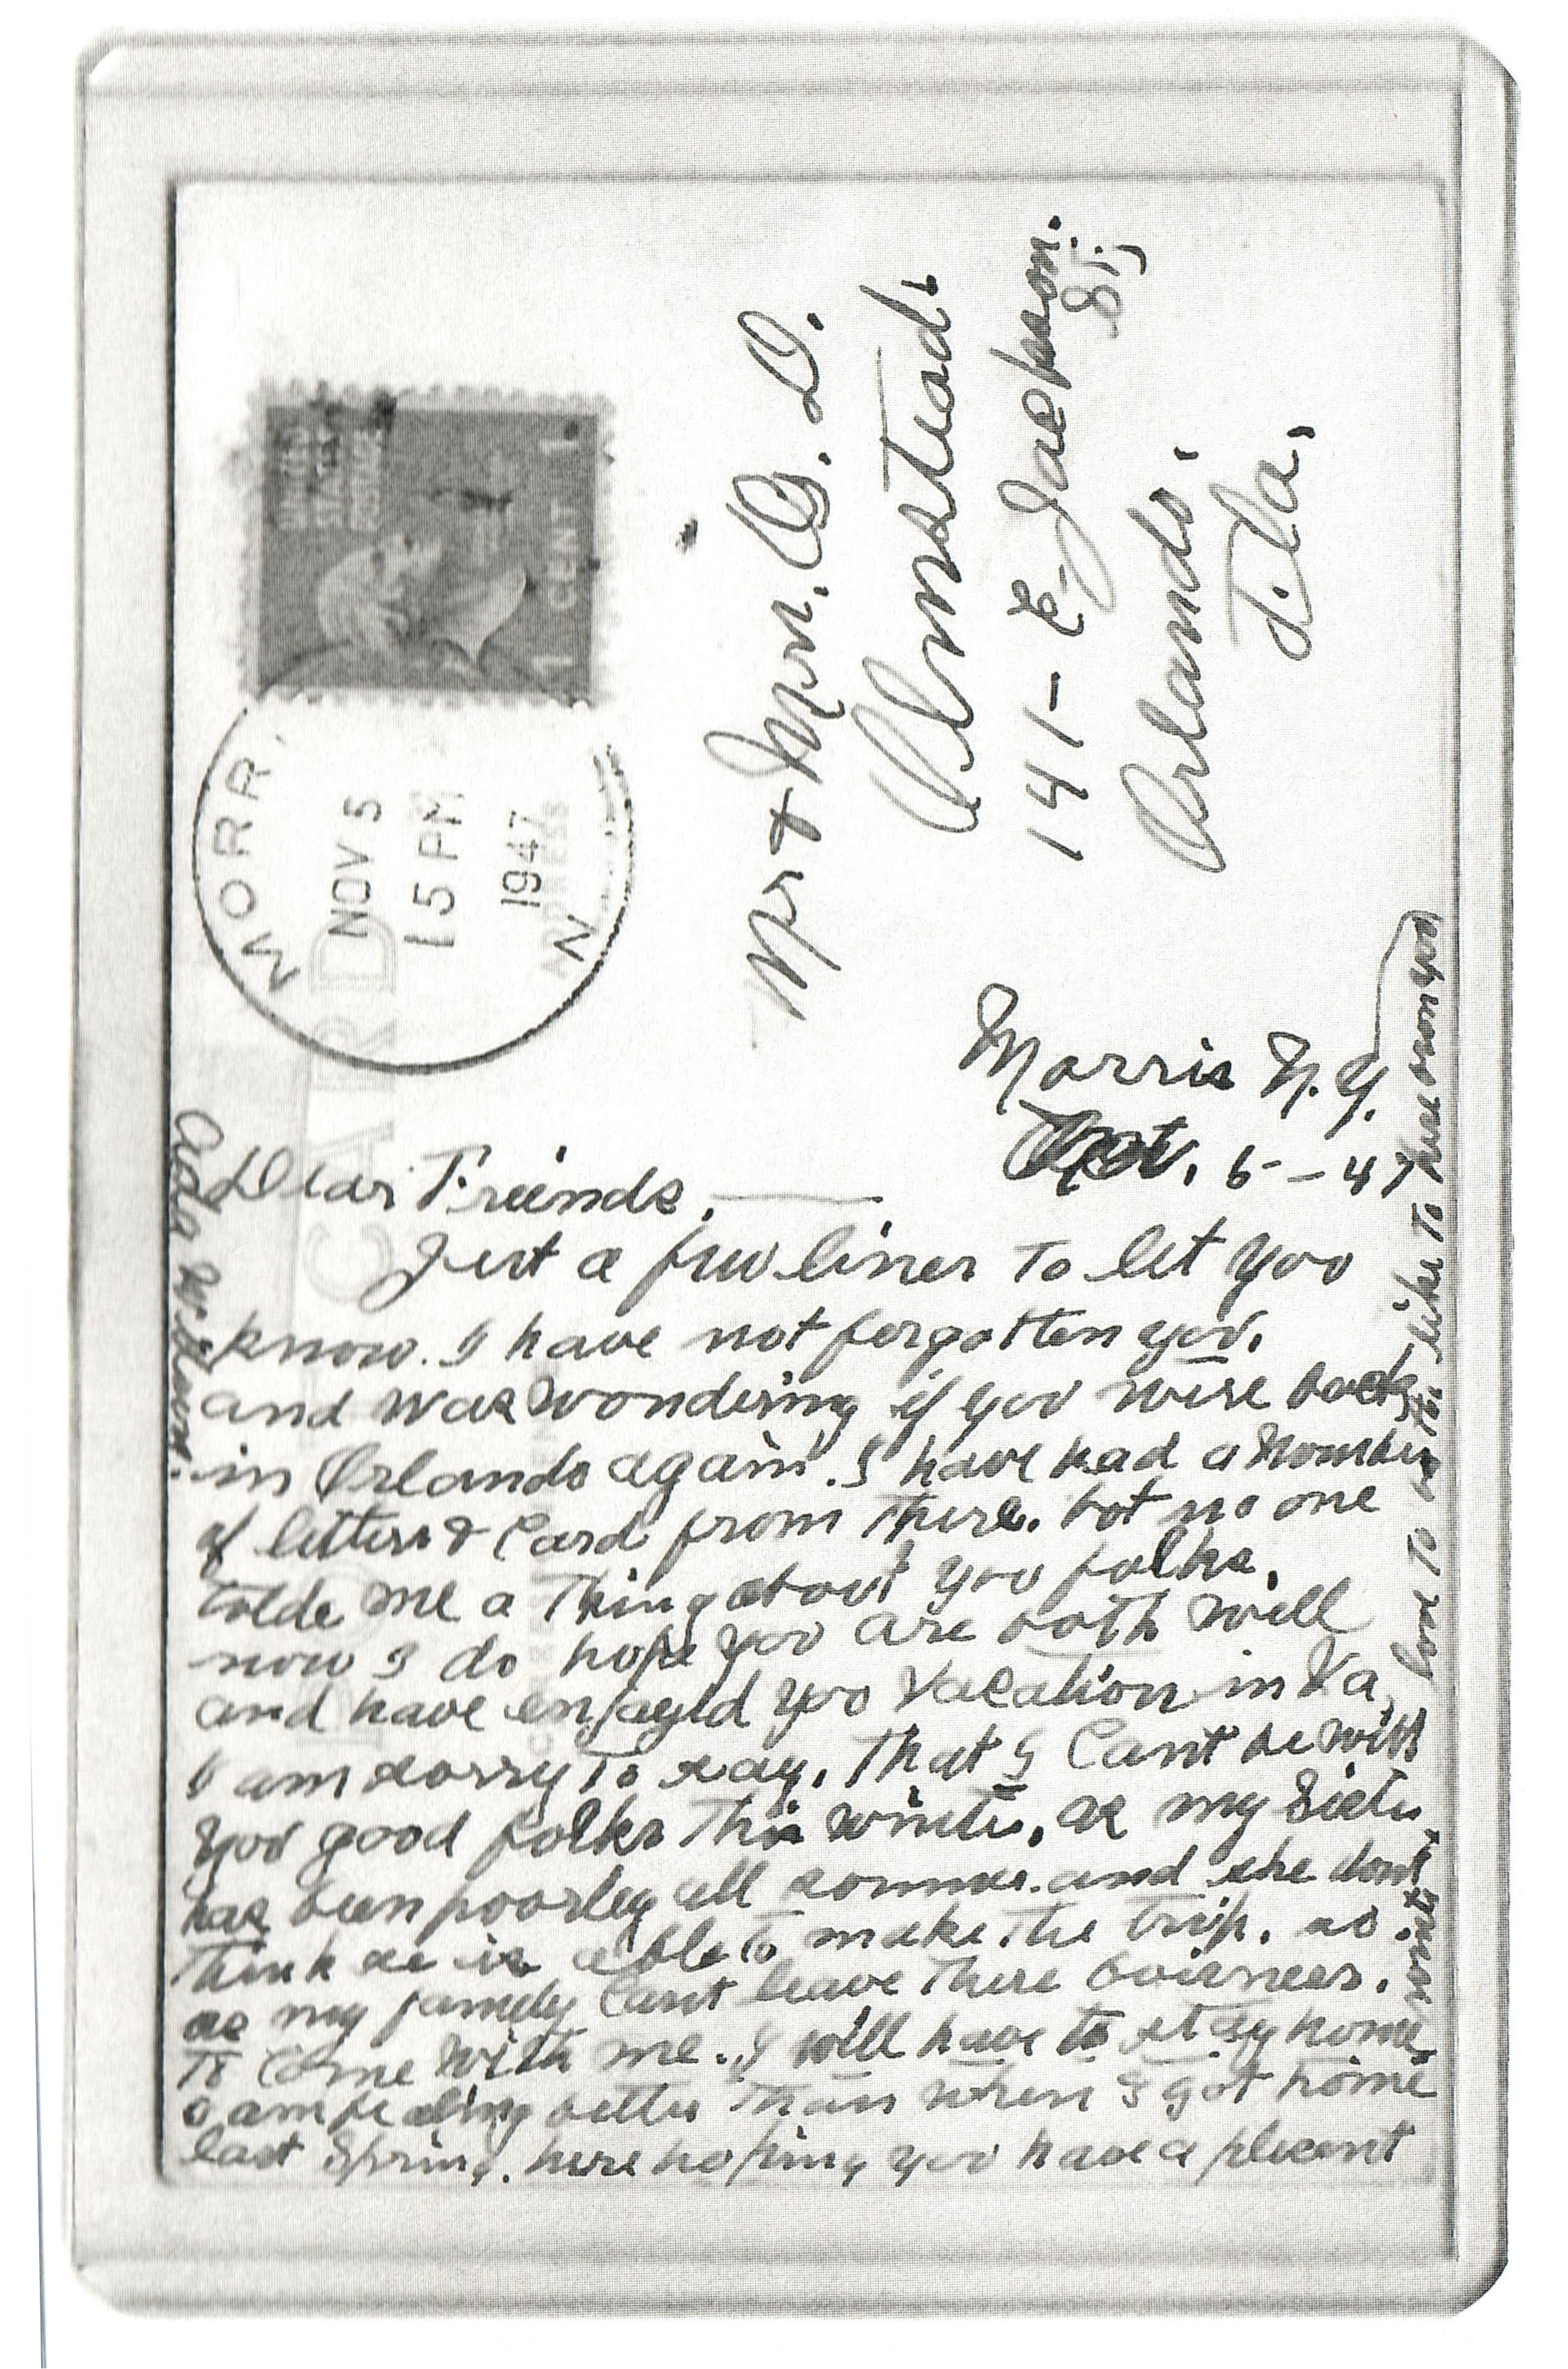 MORR
NOV 5
15 PM
1947
N
1 CENT 1
CARD
Mr & Mrs. B. D.
Olmstead,
141 - E. Jackson.
St,
Orlando,
Fla,
Morris N.Y.
6 - - 47
Dear Friends,
Just a few lines to let you
know. I have not forgotten you,
and was wondering if you were back
in Orlando again. I have had a nomber
of letters & Card from there. bot no one
tolde me a thing about you folks.
now I do hope you are both well
and have enjayed yoo vacation in Va,
I am sorry to say, that I Cant be with
you good folks this winter, as my Sister
has been poorley all sommer. and she dont
think se is able to make the trip. so
as my family Cant leave there boisness.
to Come with me. I will have to stay home
I am feeling better than when I got home
last Spring. here hoping you have a plesent
winter
love to all. like to here from you
Ada